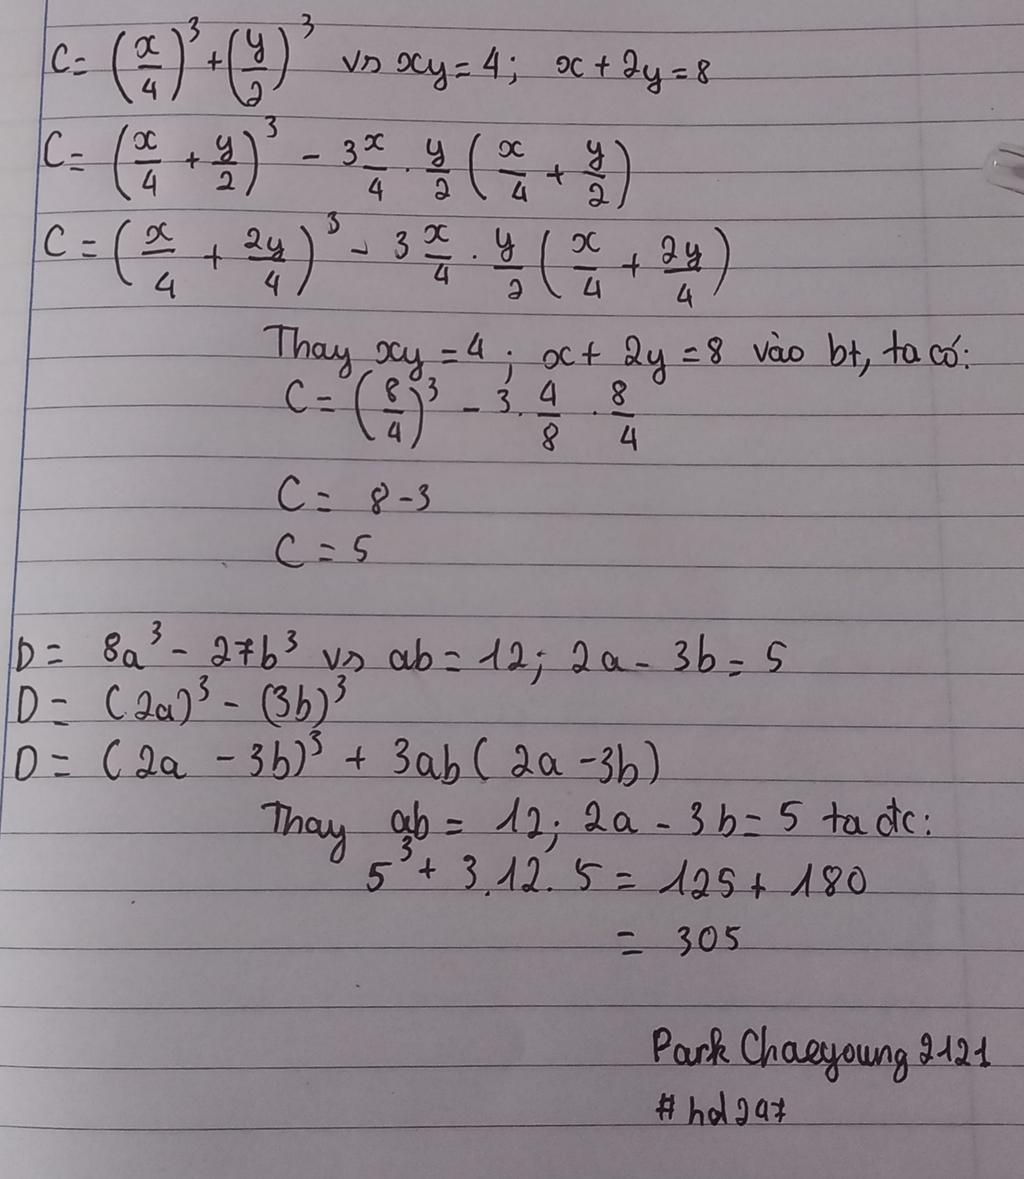 C = (x/4)³ + (y/2)³ vs xy = 4; x + 2y = 8
C = (x/4 + y/2)³ - 3 x/4 . y/2 (x/4 + y/2)
C = (x/4 + 2y/4)³ - 3 x/4 . y/2 (x/4 + 2y/4)
Thay xy = 4; x + 2y = 8 vào bt, ta có:
C = (8/4)³ - 3 . 4/8 . 8/4
C = 8 - 3
C = 5
D = 8a³ - 27b³ vs ab = 12; 2a - 3b = 5
D = (2a)³ - (3b)³
D = (2a - 3b)³ + 3ab (2a - 3b)
Thay ab = 12; 2a - 3b = 5 ta đc:
5³ + 3.12.5 = 125 + 180
= 305
Park Chaeyoung 2121
#hd297